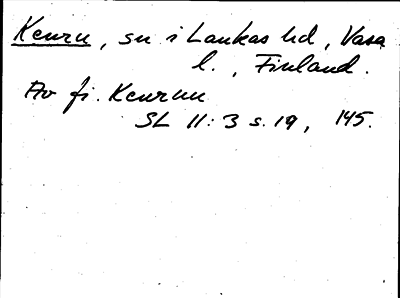 Keuru, sn i Laukas hd, Vasa
l., Finland.
Av fi. Keuruu
SL 11:3 s. 19, 145.